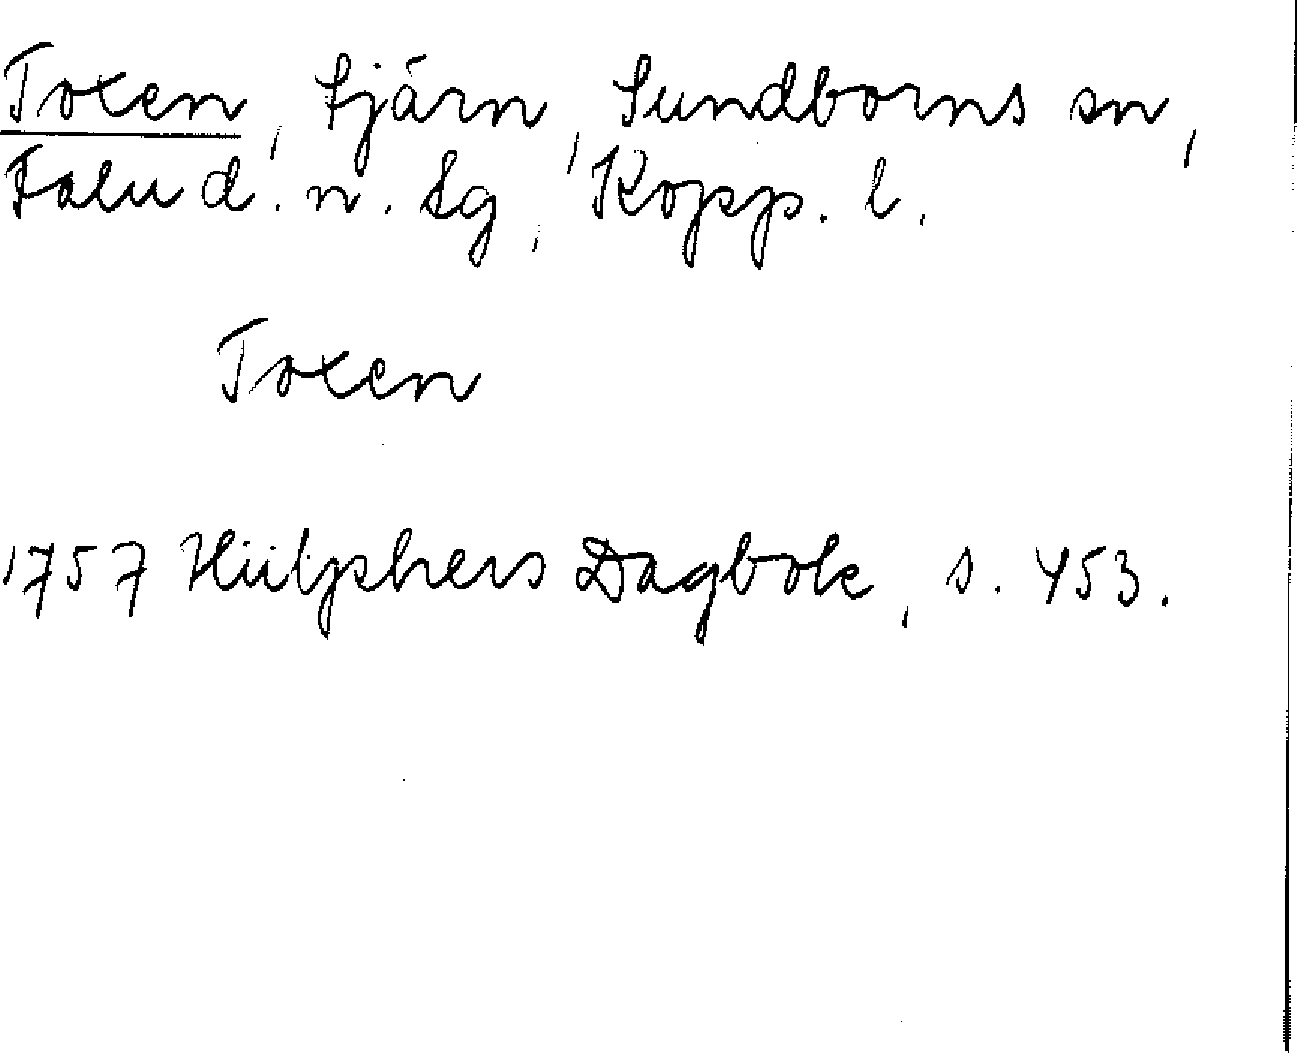 Toxen, tjärn, Sundborns sn,
Falu d. n. tg, Kopp. l.
Toxen
1757 Hülphers Dagbok, s. 453.